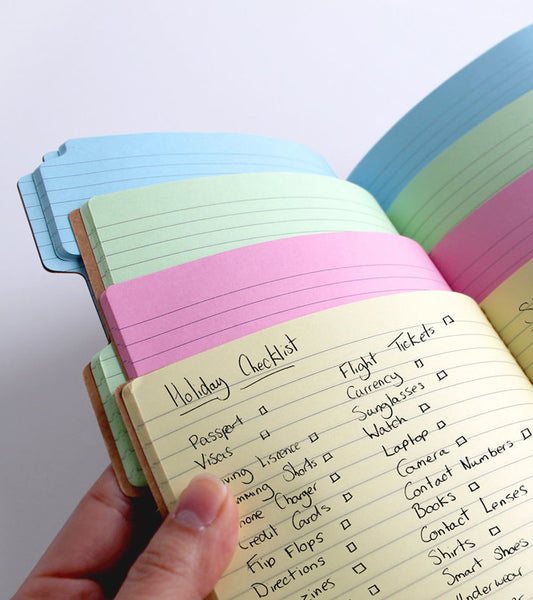 Holiday Checklist
Passport
Visas
ving Lisrence
mming Shorts
hone Charger
Credit Cards
Flip Flops
Directions
zines
Flight Tickets
Currency
Sunglasses
Watch
Laptop
Camera
Contact Numbers
Books
Contact Lenses
Shirts
Smart Shoes
Underwear